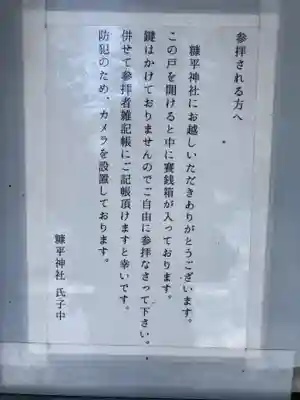 参拝される方へ
糠平神社にお越しいただきありがとうございます。
この戸を開けると中に賽銭箱が入っております。
鍵はかけておりませんのでご自由に参拝なさって下さい。
併せて参拝者雑記帳にご記帳頂けますと幸いです。
防犯のため、カメラを設置しております。
糠平神社 氏子中